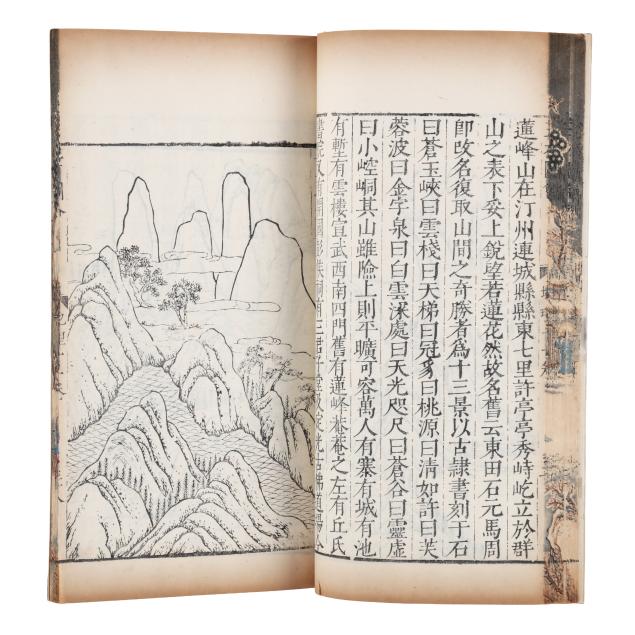 蓮峰山在汀州連城縣縣東七里許亭亭秀峙屹立於群
山之表下妥上銳望若蓮花然故名舊云東田石元馬周
卽改名復取山間之奇勝者爲十三景以古隷書刻于石
曰蒼玉峽曰雲棧曰天梯曰冠豸曰桃源曰清如許曰芙
蓉波曰金字泉曰白雲深處曰天光咫尺曰蒼谷曰靈虛
曰小崆峒其山雖險上則平曠可容萬人有寨有城有池
有塹有雲樓宣武西南四門舊有蓮峰菴菴之左有丘氏
書院又有